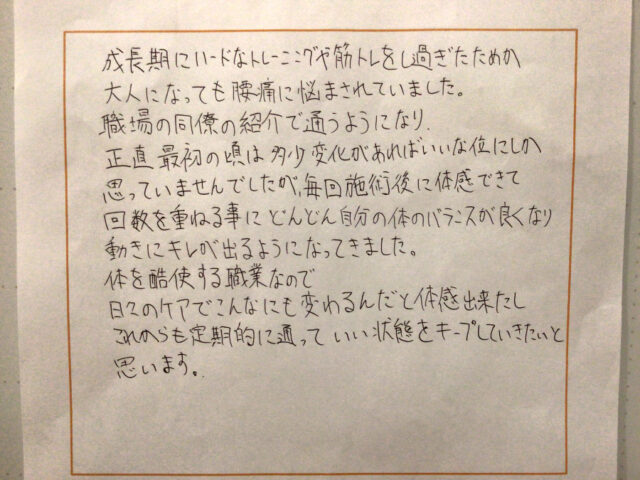 成長期にハードなトレーニングや筋トレをし過ぎたためか
大人になっても腰痛に悩まされていました。
職場の同僚の紹介で通うようになり、
正直最初の頃は多少変化があればいいな位にしか
思っていませんでしたが、毎回施術後に体感できて
回数を重ねる事にどんどん自分の体のバランスが良くなり
動きにキレが出るようになってきました。
体を酷使する職業なので
日々のケアでこんなにも変わるんだと体感出来たし
これからも定期的に通っていい状態をキープしていきたいと
思います。